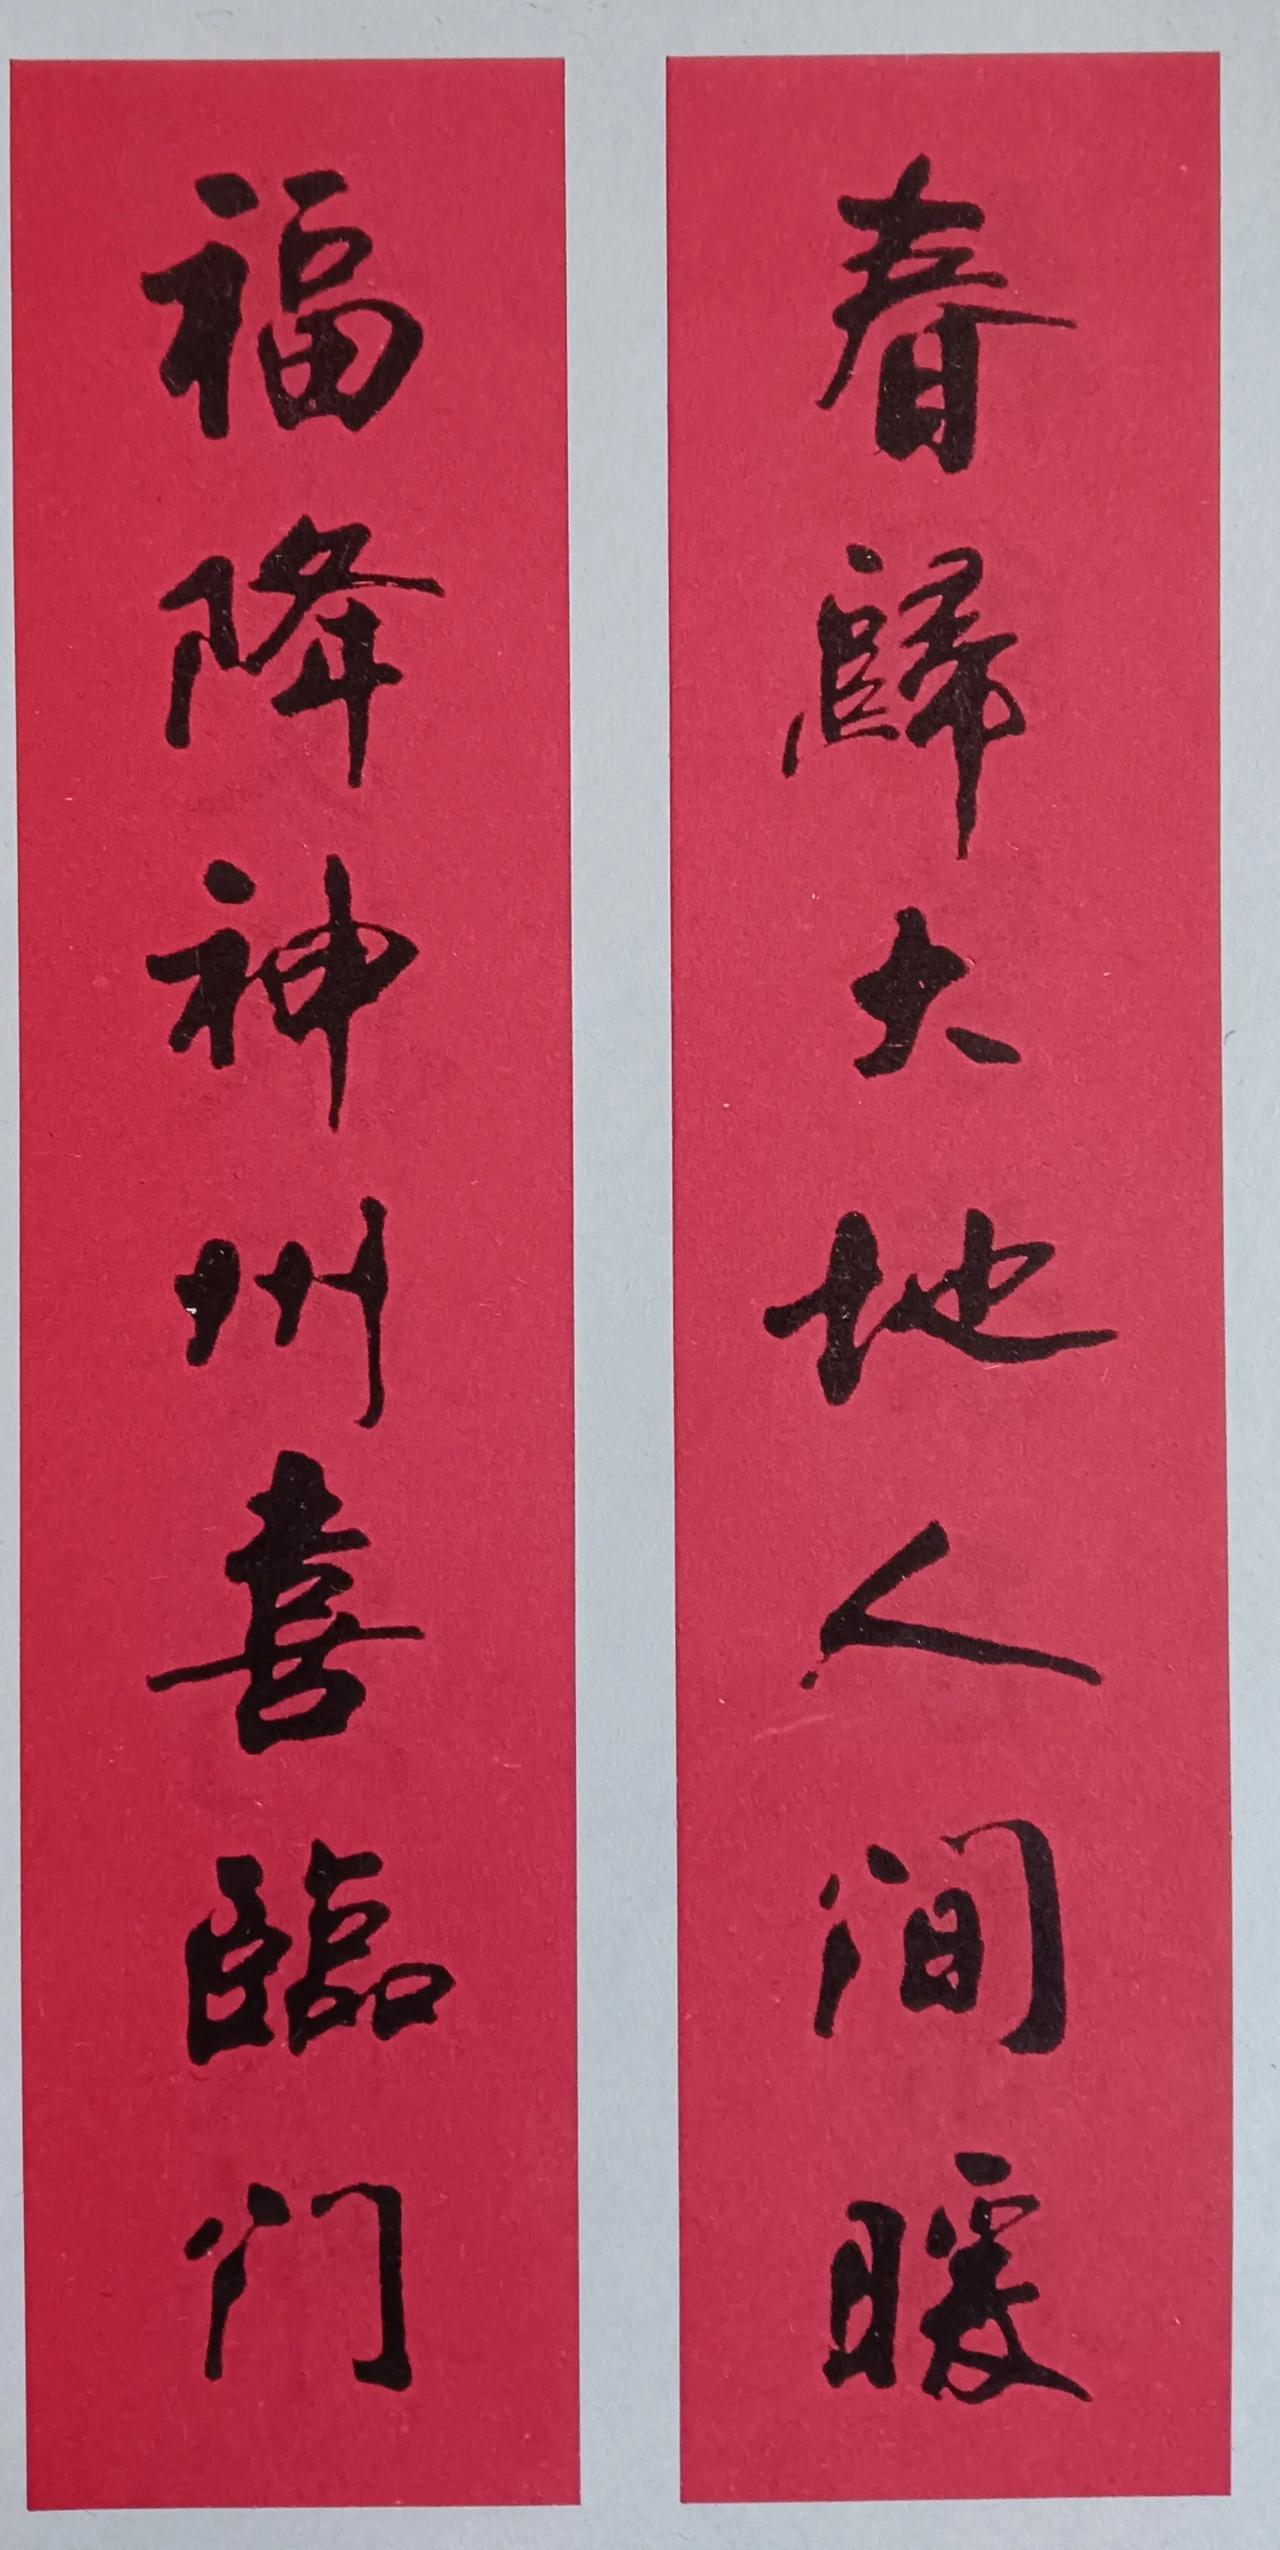 春歸大地人间暖
福降神州喜臨门